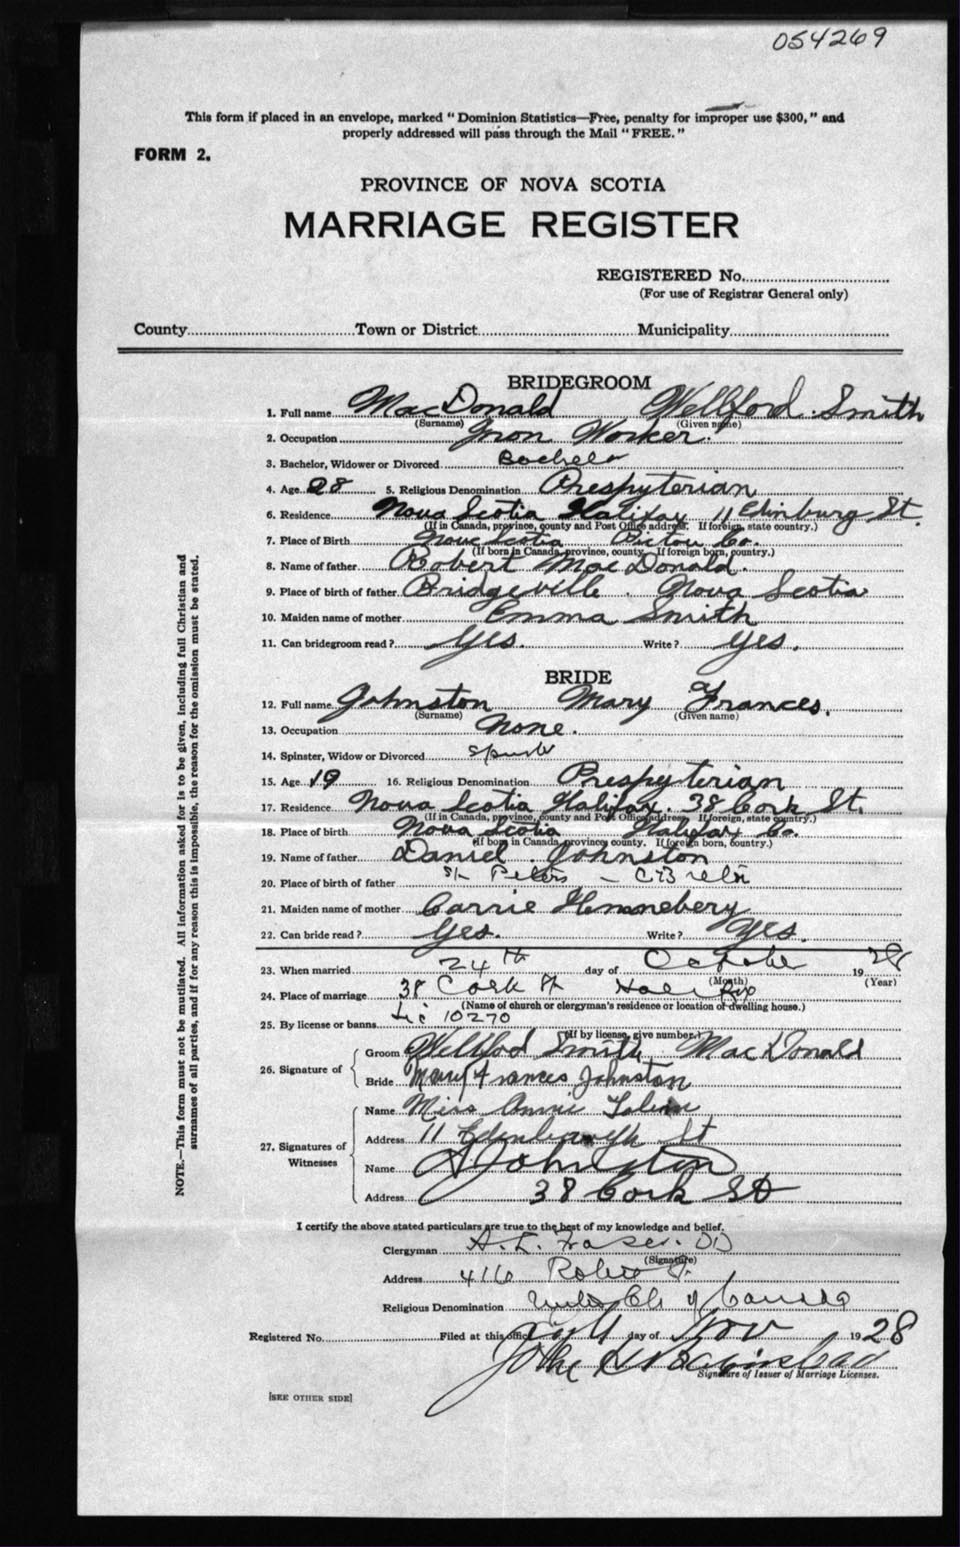 054269
This form if placed in an envelope, marked "Dominion Statistics—Free, penalty for improper use $300," and
properly addressed will pass through the Mail "FREE."
FORM 2.
PROVINCE OF NOVA SCOTIA
MARRIAGE REGISTER
REGISTERED No.
(For use of Registrar General only)
County Town or District Municipality
BRIDEGROOM
1. Full name MacDonald Wellford Smith
(Surname) (Given name)
2. Occupation Iron Worker.
3. Bachelor, Widower or Divorced Bachelor
4. Age 28 5. Religious Denomination Presbyterian
6. Residence Nova Scotia Halifax 11 Edinburg St.
(If in Canada, province, county and Post Office address. If foreign, state country.)
7. Place of Birth Nova Scotia Pictou Co.
(If born in Canada, province, county. If foreign born, country.)
8. Name of father Robert MacDonald.
9. Place of birth of father Bridgeville. Nova Scotia
10. Maiden name of mother Emma Smith
11. Can bridegroom read? Yes. Write? Yes.
BRIDE
12. Full name Johnston Mary Frances.
(Surname) (Given name)
13. Occupation None.
14. Spinster, Widow or Divorced
15. Age 19 16. Religious Denomination Presbyterian
17. Residence Nova Scotia Halifax. 38 Cork St.
(If in Canada, province, county and Post Office address, If foreign, state country.)
18. Place of birth Nova Scotia Halifax Co.
(If born in Canada, province, county. If foreign born, country.)
19. Name of father Daniel Johnston
20. Place of birth of father St Peters — C Breton
21. Maiden name of mother Carrie Hennebery
22. Can bride read? Yes. Write? Yes.
23. When married 24th day of October 1928
(Month) (Year)
24. Place of marriage 38 Cork St Halifax
(Name of church or clergyman's residence or location of dwelling house.)
25. By license or banns Lic 10270
(If by license, give number.)
26. Signature of Groom Wellford Smith MacDonald
Bride Mary Frances Johnston
27. Signatures of Witnesses Name Miss Annie
Address 11 Edenborough St
Name Johnston
Address 38 Cork St
I certify the above stated particulars are true to the best of my knowledge and belief.
Clergyman A. L. Fraser. DD
(Signature)
Address 416 Robie St.
Religious Denomination United Ch of Canada
Registered No. Filed at this office day of Nov 1928
John
Signature of Issuer of Marriage Licenses.
[SEE OTHER SIDE]
NOTE.—This form must not be mutilated. All information asked for is to be given, including full Christian and
surnames of all parties, and if for any reason this is impossible, the reason for the omission must be stated.